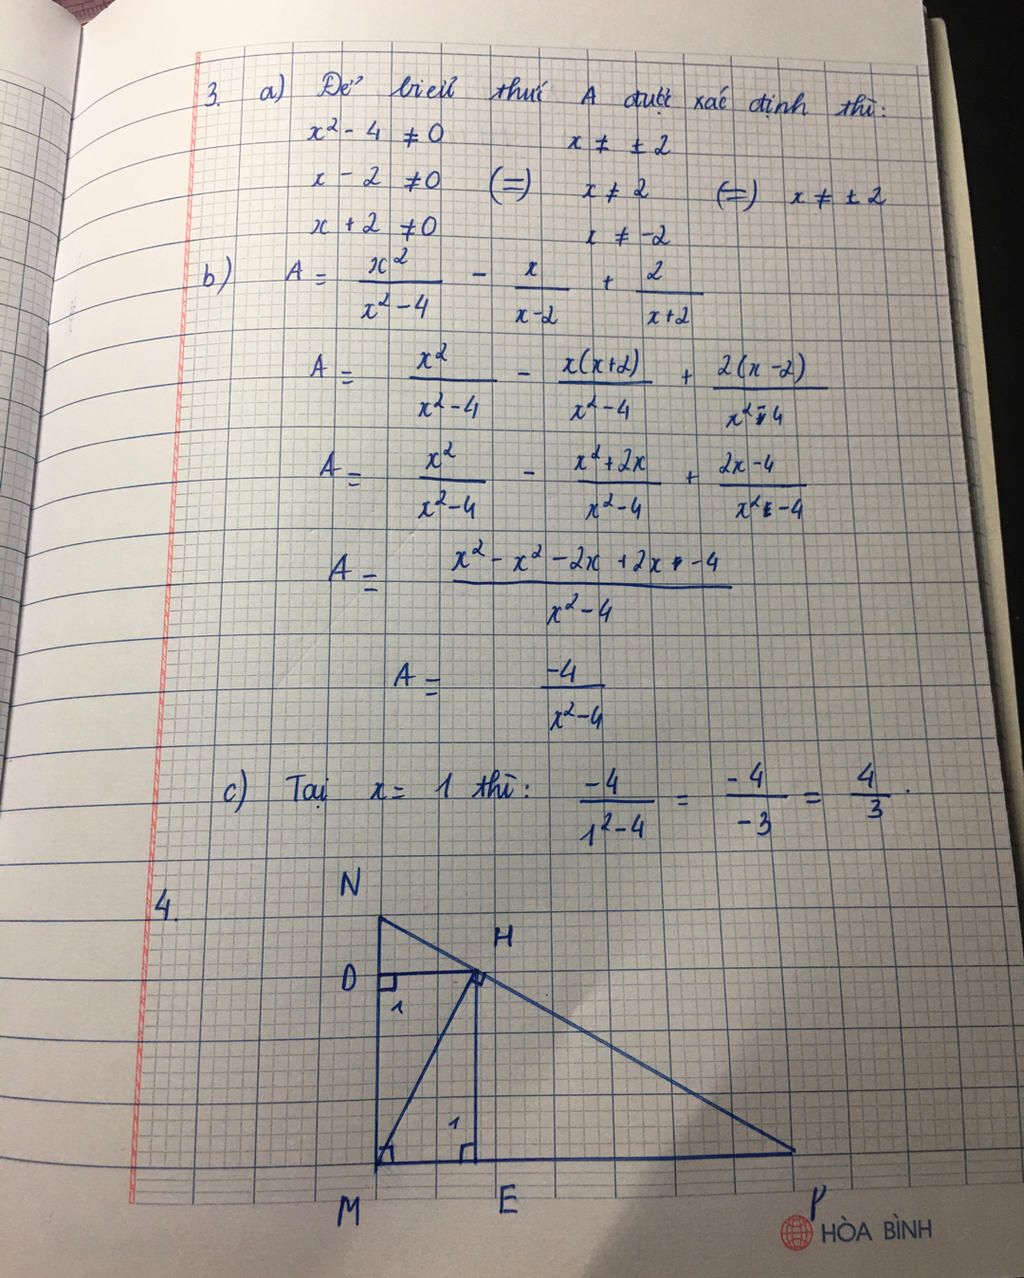 3. a) Để biểu thức A được xác định thì:
x² - 4 ≠ 0 x ≠ ± 2
x - 2 ≠ 0 (=) x ≠ 2 (=) x ≠ ± 2
x + 2 ≠ 0 x ≠ -2
b) A = x²/(x² - 4) - x/(x - 2) + 2/(x + 2)
A = x²/(x² - 4) - x(x+2)/(x² - 4) + 2(x - 2)/(x² - 4)
A = x²/(x² - 4) - (x² + 2x)/(x² - 4) + (2x - 4)/(x² - 4)
A = (x² - x² - 2x + 2x - 4)/(x² - 4)
A = -4/(x² - 4)
c) Tại x = 1 thì: -4/(1² - 4) = -4/-3 = 4/3.
4.
N
H
D
1
1
M E P
HÒA BÌNH